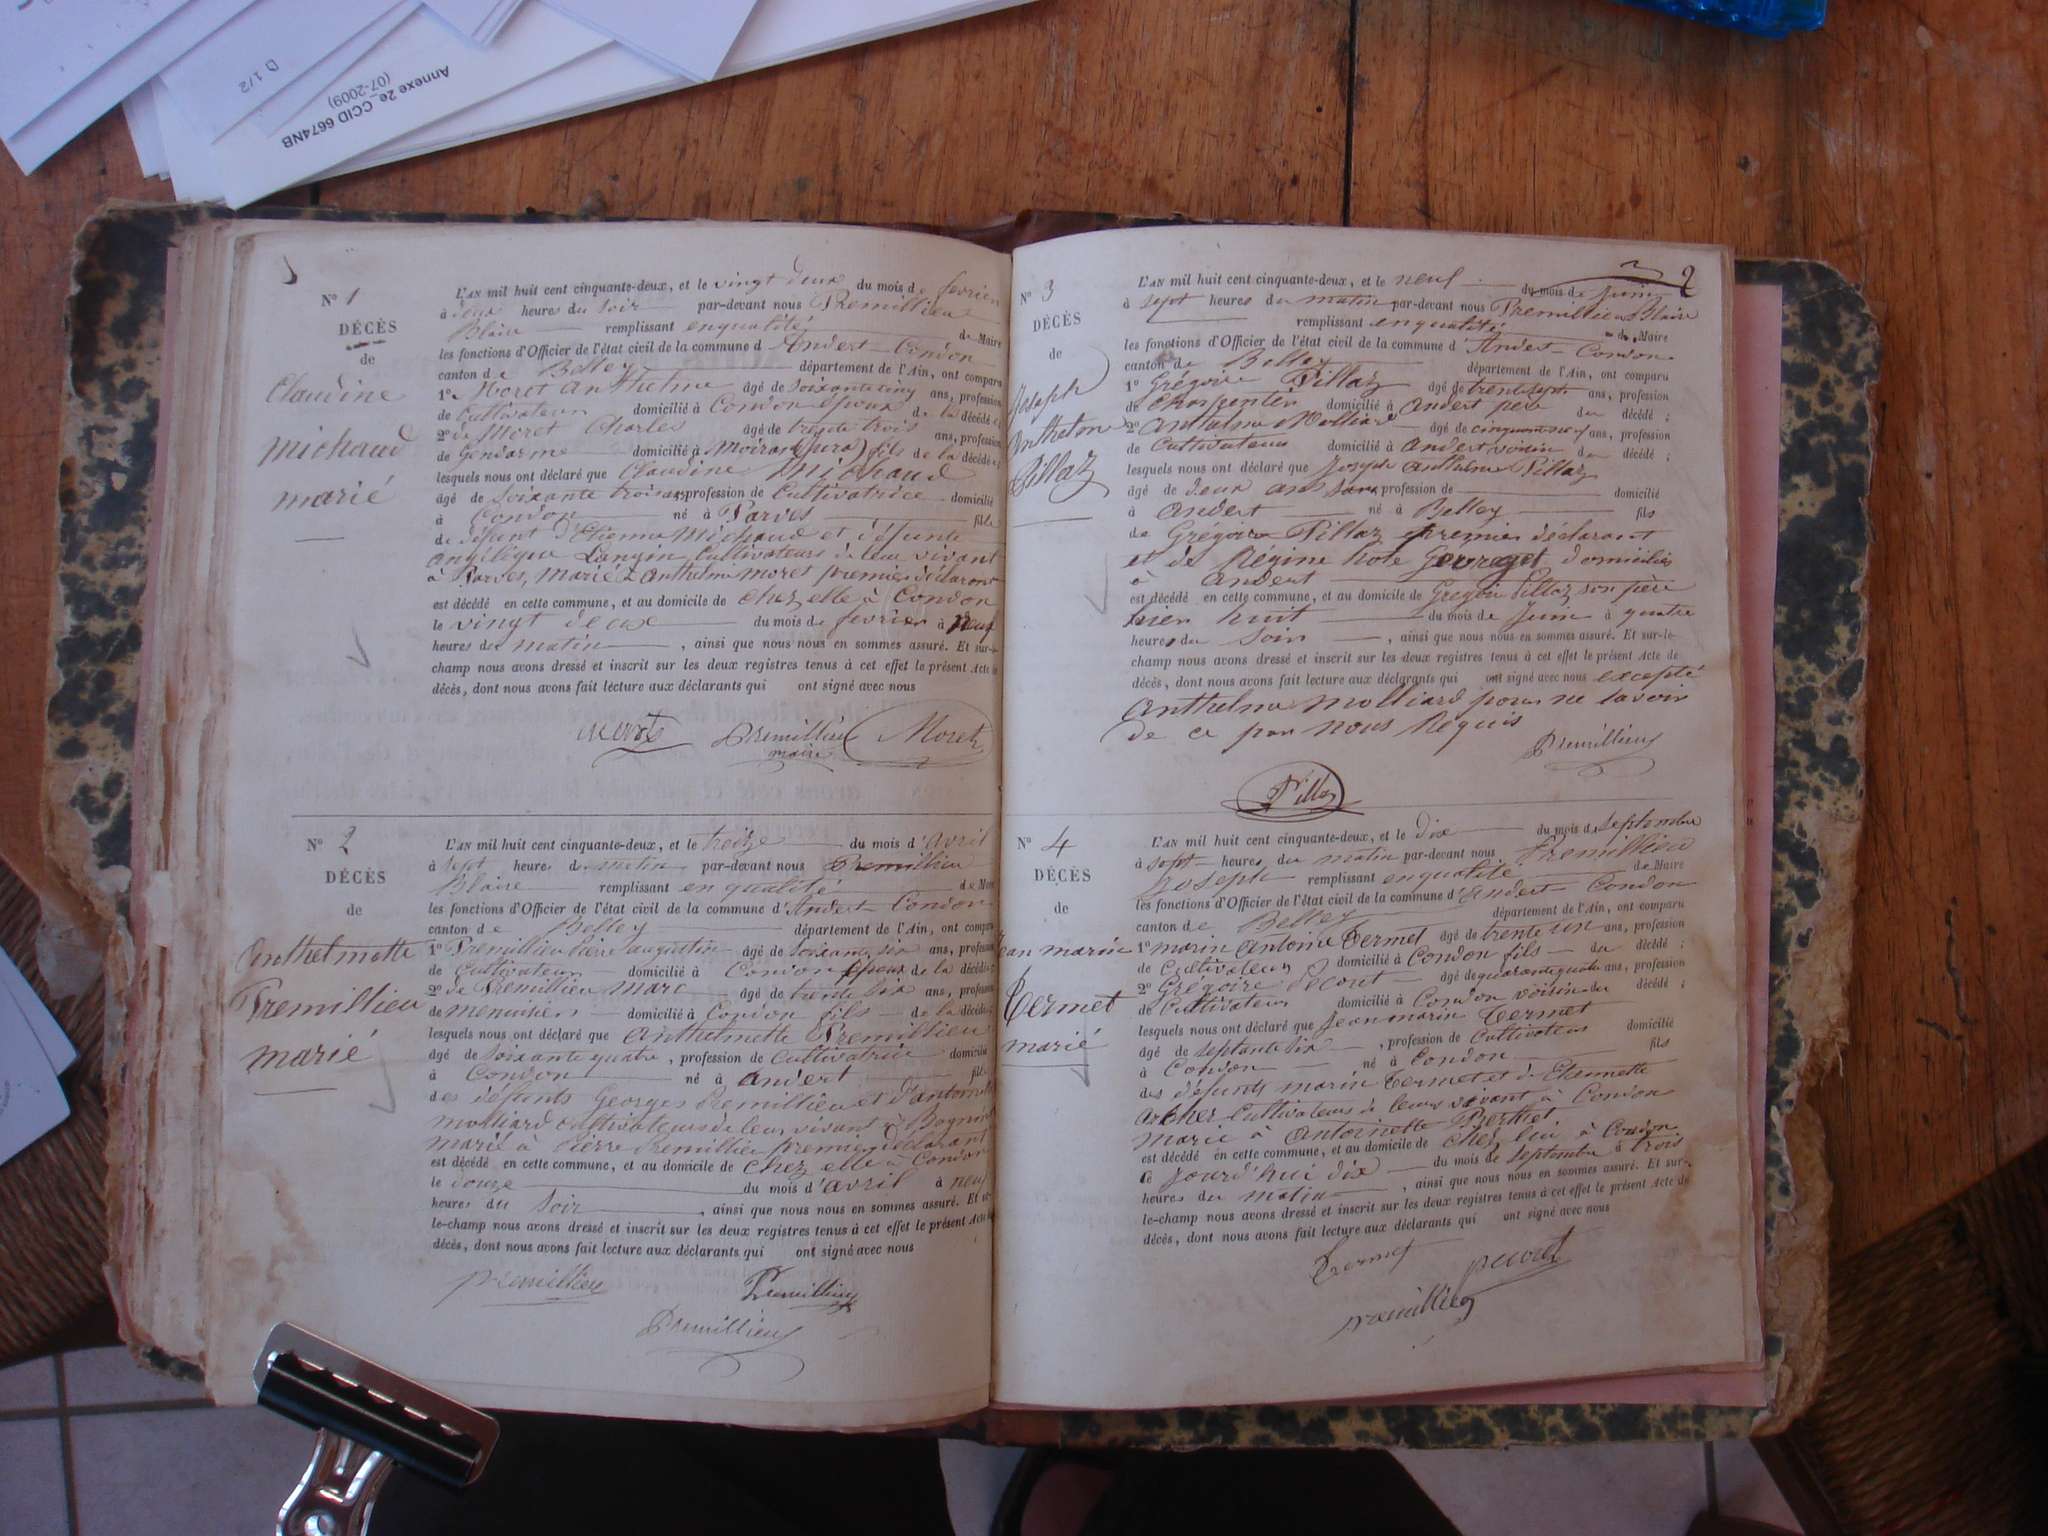 D 1/2
Annexe 2e CCID 6674NB
(07-2009)
N° 1
DÉCÈS
de
Claudine
Michaud
marié
L'AN mil huit cent cinquante-deux, et le vingt deux du mois de fevrier
à deux heures du soir par-devant nous Premillieu
Blaise remplissant en qualité de Maire
les fonctions d'Officier de l'état civil de la commune d'Andert-Condon
canton de Belley département de l'Ain, ont comparu
1° Moret Anthelme âgé de soixante cinq ans, profession
de Cultivateur domicilié à Condon époux de la décédée
2° de Moret Charles âgé de trente trois ans, profession
de Gendarme domicilié à Moirans (jura) fils de la décédée
lesquels nous ont déclaré que Claudine Michaud
âgé de soixante trois ans profession de Cultivatrice domicilié
à Condon né à Parves fille
de défunt d'Etienne Michaud et défunte
angélique cultivateurs de leur vivant
à Parves, Marié à Anthelme moret premier déclarant
est décédé en cette commune, et au domicile de chez elle à Condon
le vingt deux du mois de fevrier à neuf
heures du matin, ainsi que nous nous en sommes assuré. Et sur-le-
champ nous avons dressé et inscrit sur les deux registres tenus à cet effet le présent Acte de
décès, dont nous avons fait lecture aux déclarants qui ont signé avec nous
Premillieu Moret
maire
N° 2
DÉCÈS
de
Anthelmette
Premillieu
marié
L'AN mil huit cent cinquante-deux, et le treize du mois d'avril
à sept heures du matin par-devant nous Premillieu
Blaise remplissant en qualité de Maire
les fonctions d'Officier de l'état civil de la commune d'Andert-Condon
canton de Belley département de l'Ain, ont comparu
1° Premillieu Pierre augustin âgé de soixante six ans, profession
de Cultivateur domicilié à Condon époux de la décédée
2° de Premillieu Marc âgé de trente six ans, profession
de menuisier domicilié à Condon fils de la décédée
lesquels nous ont déclaré que Anthelmette Premillieu
âgé de soixante quatre, profession de Cultivatrice domicilié
à Condon né à Andert fille
des défunts Georges Premillieu et d'antoinette
molliard cultivateurs de leur vivant à
marié à Pierre Premillieu premier déclarant
est décédé en cette commune, et au domicile de chez elle à Condon
le douze du mois d'avril à neuf
heures du soir, ainsi que nous nous en sommes assuré. Et sur-
le-champ nous avons dressé et inscrit sur les deux registres tenus à cet effet le présent Acte de
décès, dont nous avons fait lecture aux déclarants qui ont signé avec nous
premillieu Premillieu
Premillieu
2
N° 3
DÉCÈS
de
Joseph
Anthelme
Pillaz
L'AN mil huit cent cinquante-deux, et le neuf du mois de Juin
à sept heures du matin par-devant nous Premillieu Blaise
remplissant en qualité de Maire
les fonctions d'Officier de l'état civil de la commune d'Andert-Condon
canton de Belley département de l'Ain, ont comparu
1° Grégoire Pillaz âgé de trente sept ans, profession
de Charpentier domicilié à Andert père du décédé ;
2° Anthelme Molliard âgé de ans, profession
de Cultivateur domicilié à Andert voisin du décédé ;
lesquels nous ont déclaré que Joseph Anthelme Pillaz
âgé de deux ans sans profession de domicilié
à Andert né à Belley fils
de Grégoire Pillaz premier déclarant
et de Régine domiciliés
à Andert
est décédé en cette commune, et au domicile de Grégoire Pillaz son père
hier huit du mois de Juin à quatre
heures du soir, ainsi que nous nous en sommes assuré. Et sur-le-
champ nous avons dressé et inscrit sur les deux registres tenus à cet effet le présent Acte de
décès, dont nous avons fait lecture aux déclarants qui ont signé avec nous excepté
Anthelme molliard pour ne savoir
de ce par nous Requis
Premillieu
Pillaz
N° 4
DÉCÈS
de
Jean marin
Termet
marié
L'AN mil huit cent cinquante-deux, et le dix du mois de septembre
à sept heures du matin par-devant nous Premillieu
Joseph remplissant en qualité de Maire
les fonctions d'Officier de l'état civil de la commune d'Andert Condon
canton de Belley département de l'Ain, ont comparu
1° marin Antoine Termet âgé de trente un ans, profession
de Cultivateur domicilié à Condon fils du décédé ;
2° Grégoire âgé de quarante quatre ans, profession
de Cultivateur domicilié à Condon voisin du décédé ;
lesquels nous ont déclaré que Jean marin Termet
âgé de septante six, profession de Cultivateur domicilié
à Condon né à Condon fils
des défunts marin Termet et d'Etiennette
archer Cultivateurs de leurs vivant à Condon
Marié à Antoinette Berthet
est décédé en cette commune, et au domicile de chez lui à Condon
ce jourd'hui dix du mois de septembre à trois
heures du matin, ainsi que nous nous en sommes assuré. Et sur-
le-champ nous avons dressé et inscrit sur les deux registres tenus à cet effet le présent Acte de
décès, dont nous avons fait lecture aux déclarants qui ont signé avec nous
Termet
premillieu